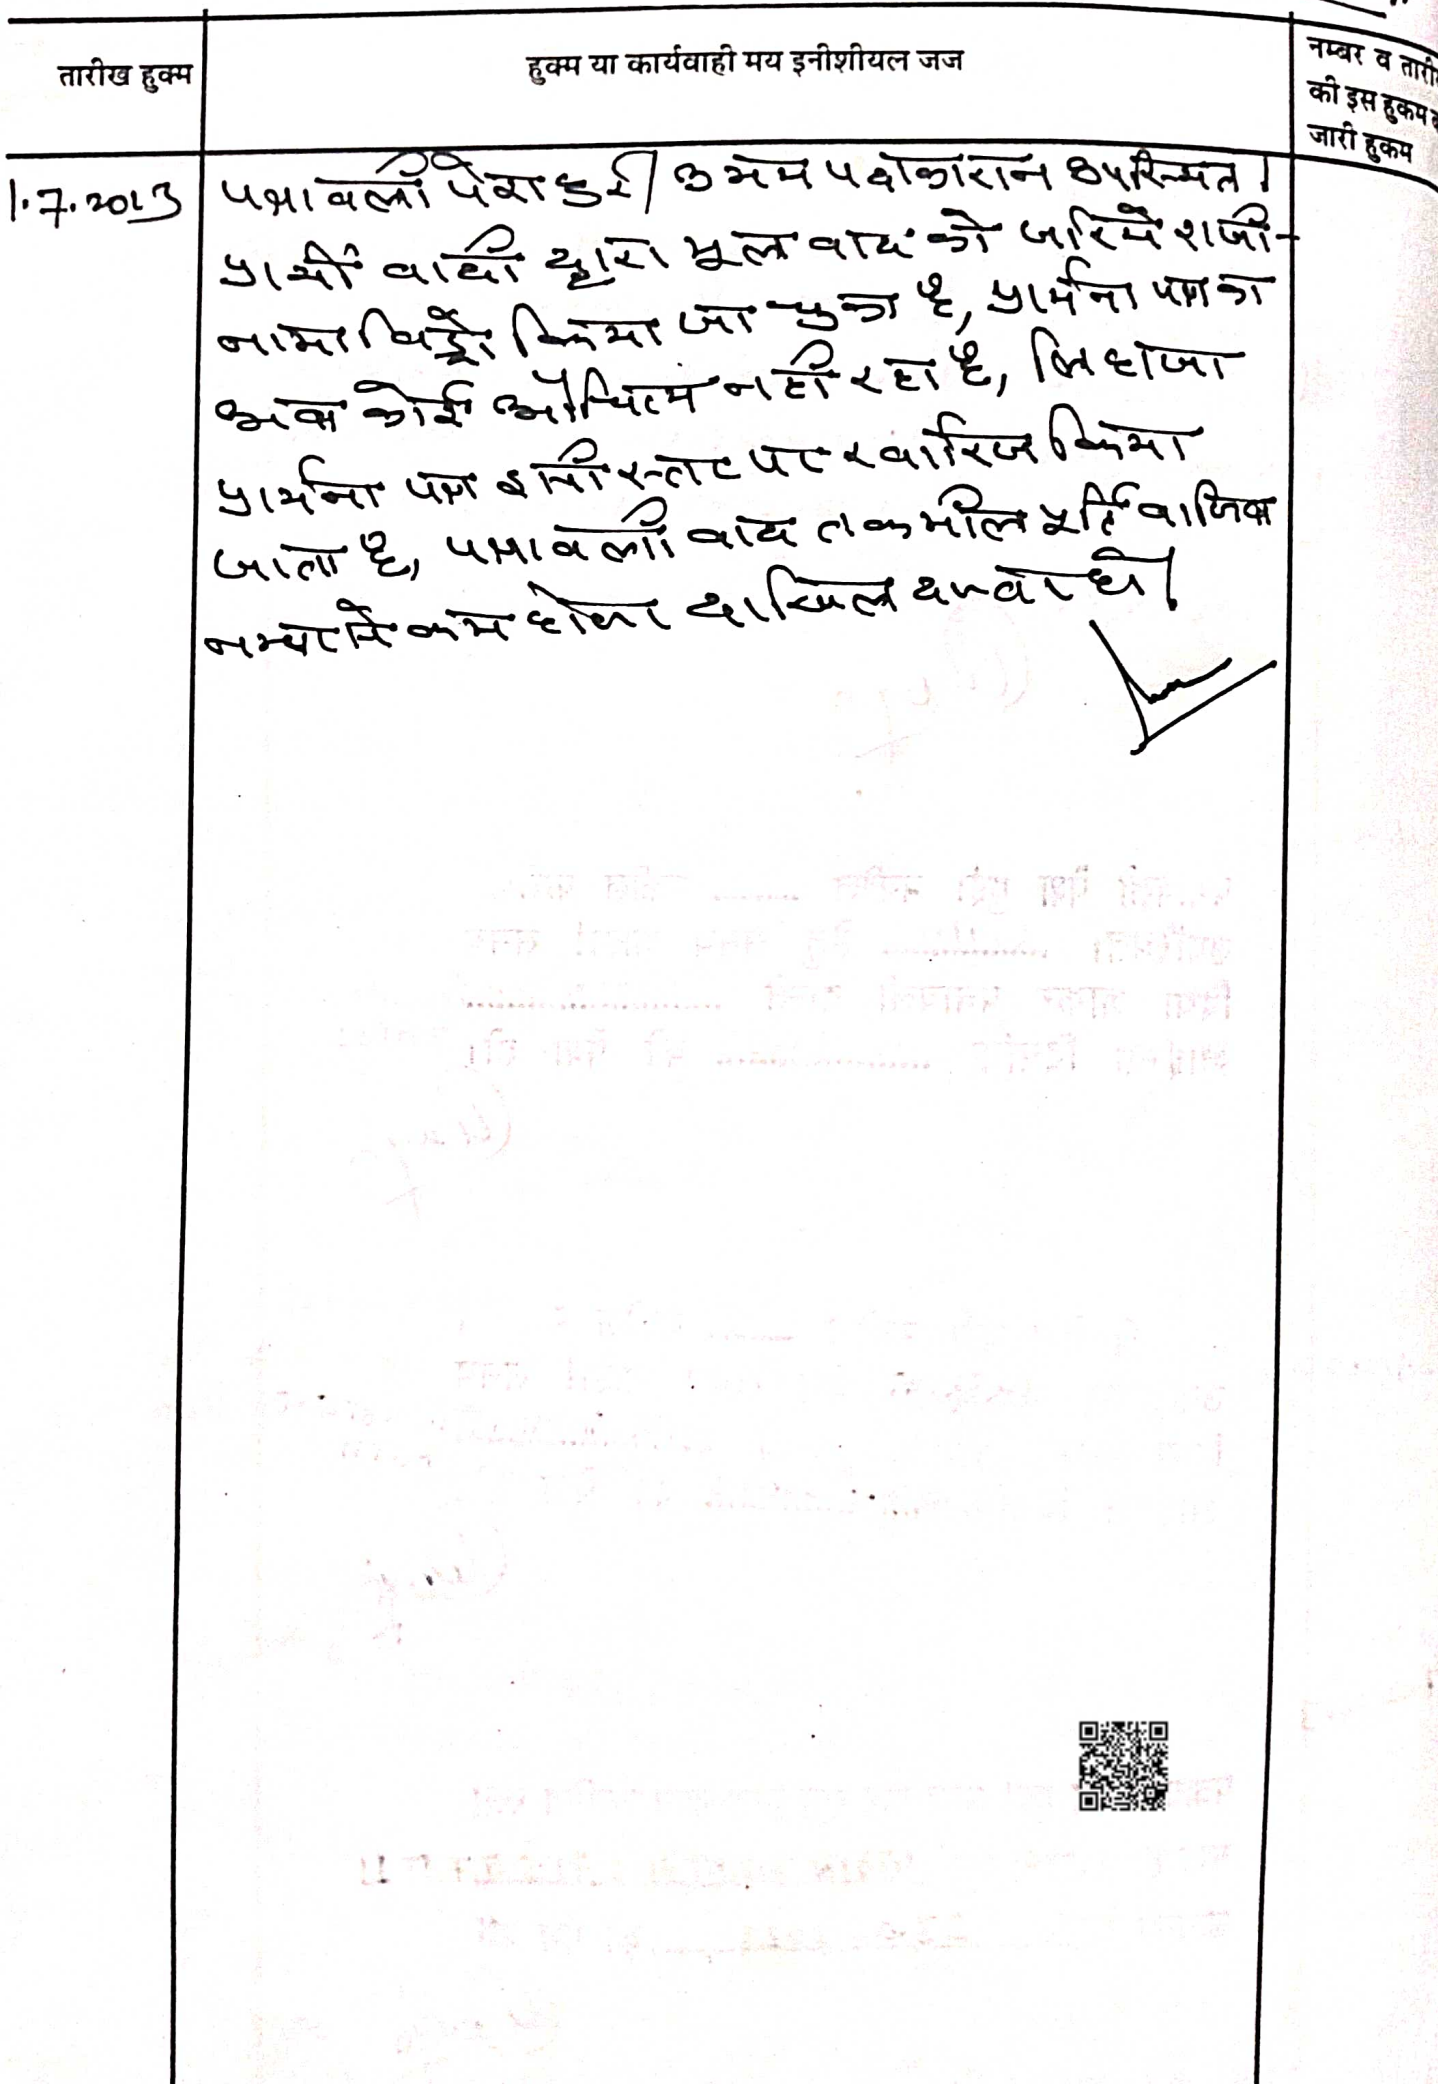 तारीख हुक्म
हुक्म या कार्यवाही मय इनीशीयल जज
नम्बर व तारी
की इस हुकम
जारी हुकम
1.7.2013
पत्रावली पेश हुई। उभय पक्षकारान उपस्थित।
प्रार्थी वादी द्वारा मूल वाद को जरिये राजी-
नामा विड्रो किया जा चुका है, प्रार्थना पत्र का
अब कोई औचित्य नहीं रहा है, लिहाजा
प्रार्थना पत्र इसी स्तर पर खारिज किया
जाता है, पत्रावली बाद तकमील पूर्ति वाजिब
नम्बर से कम होकर दाखिल दफ्तर हो।